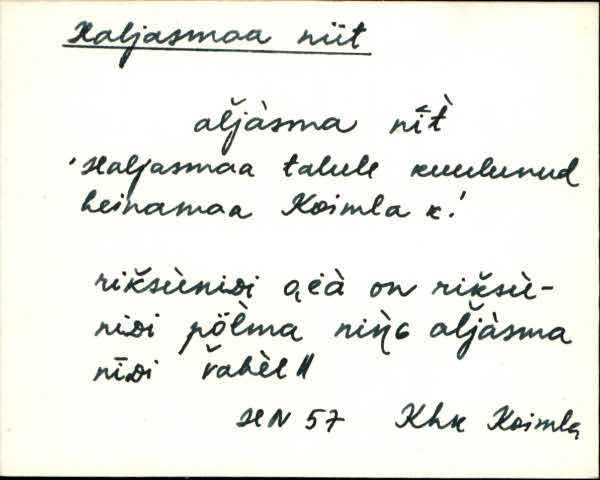 Haljasmaa niit
al̆jàsma nī̆t̀
'Haljasmaa talule kuulunud
heinamaa Koimla k.'
rik̆sùeniᴅi on rik̆sù-
niᴅi põl̀ma niŋ̀ɢ al̆jàsma
nīᴅi v̆ahèl ‖
HN 57 Khk Koimla